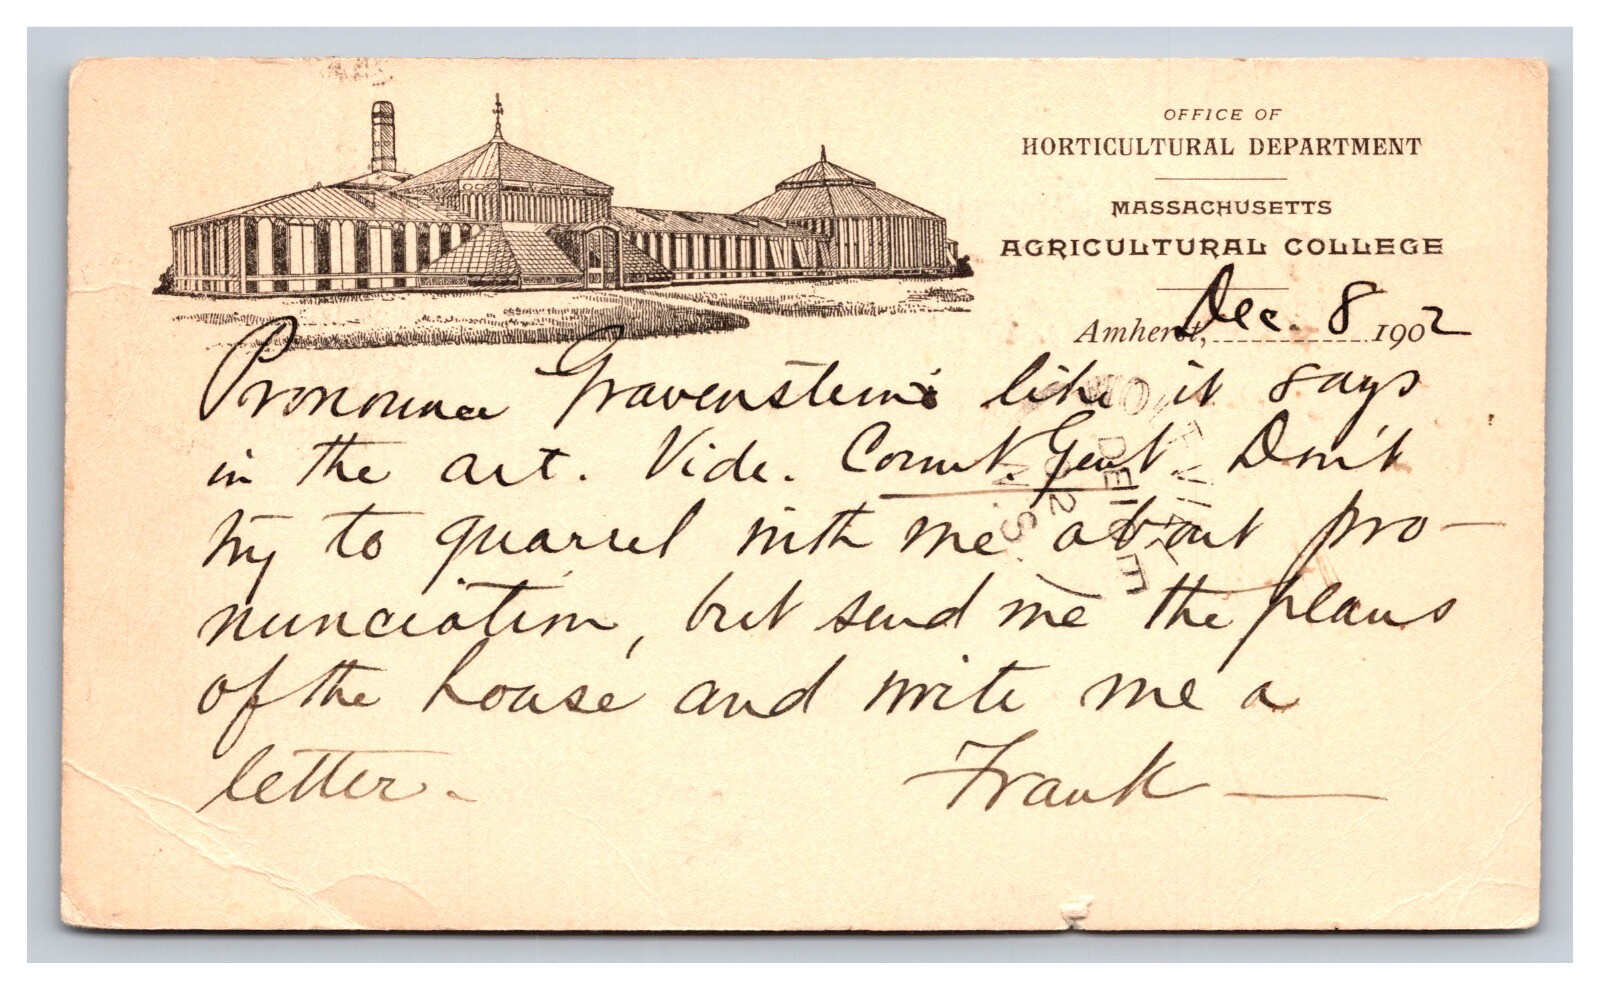 OFFICE OF
HORTICULTURAL DEPARTMENT
MASSACHUSETTS
AGRICULTURAL COLLEGE
Amherst, Dec. 8 1902
Pronounce Gravenstein like it says
in the art. Vide. Count. Gent. Don't
try to quarrel with me about pro-
nunciation, but send me the plans
of the house and write me a
letter.
Frank